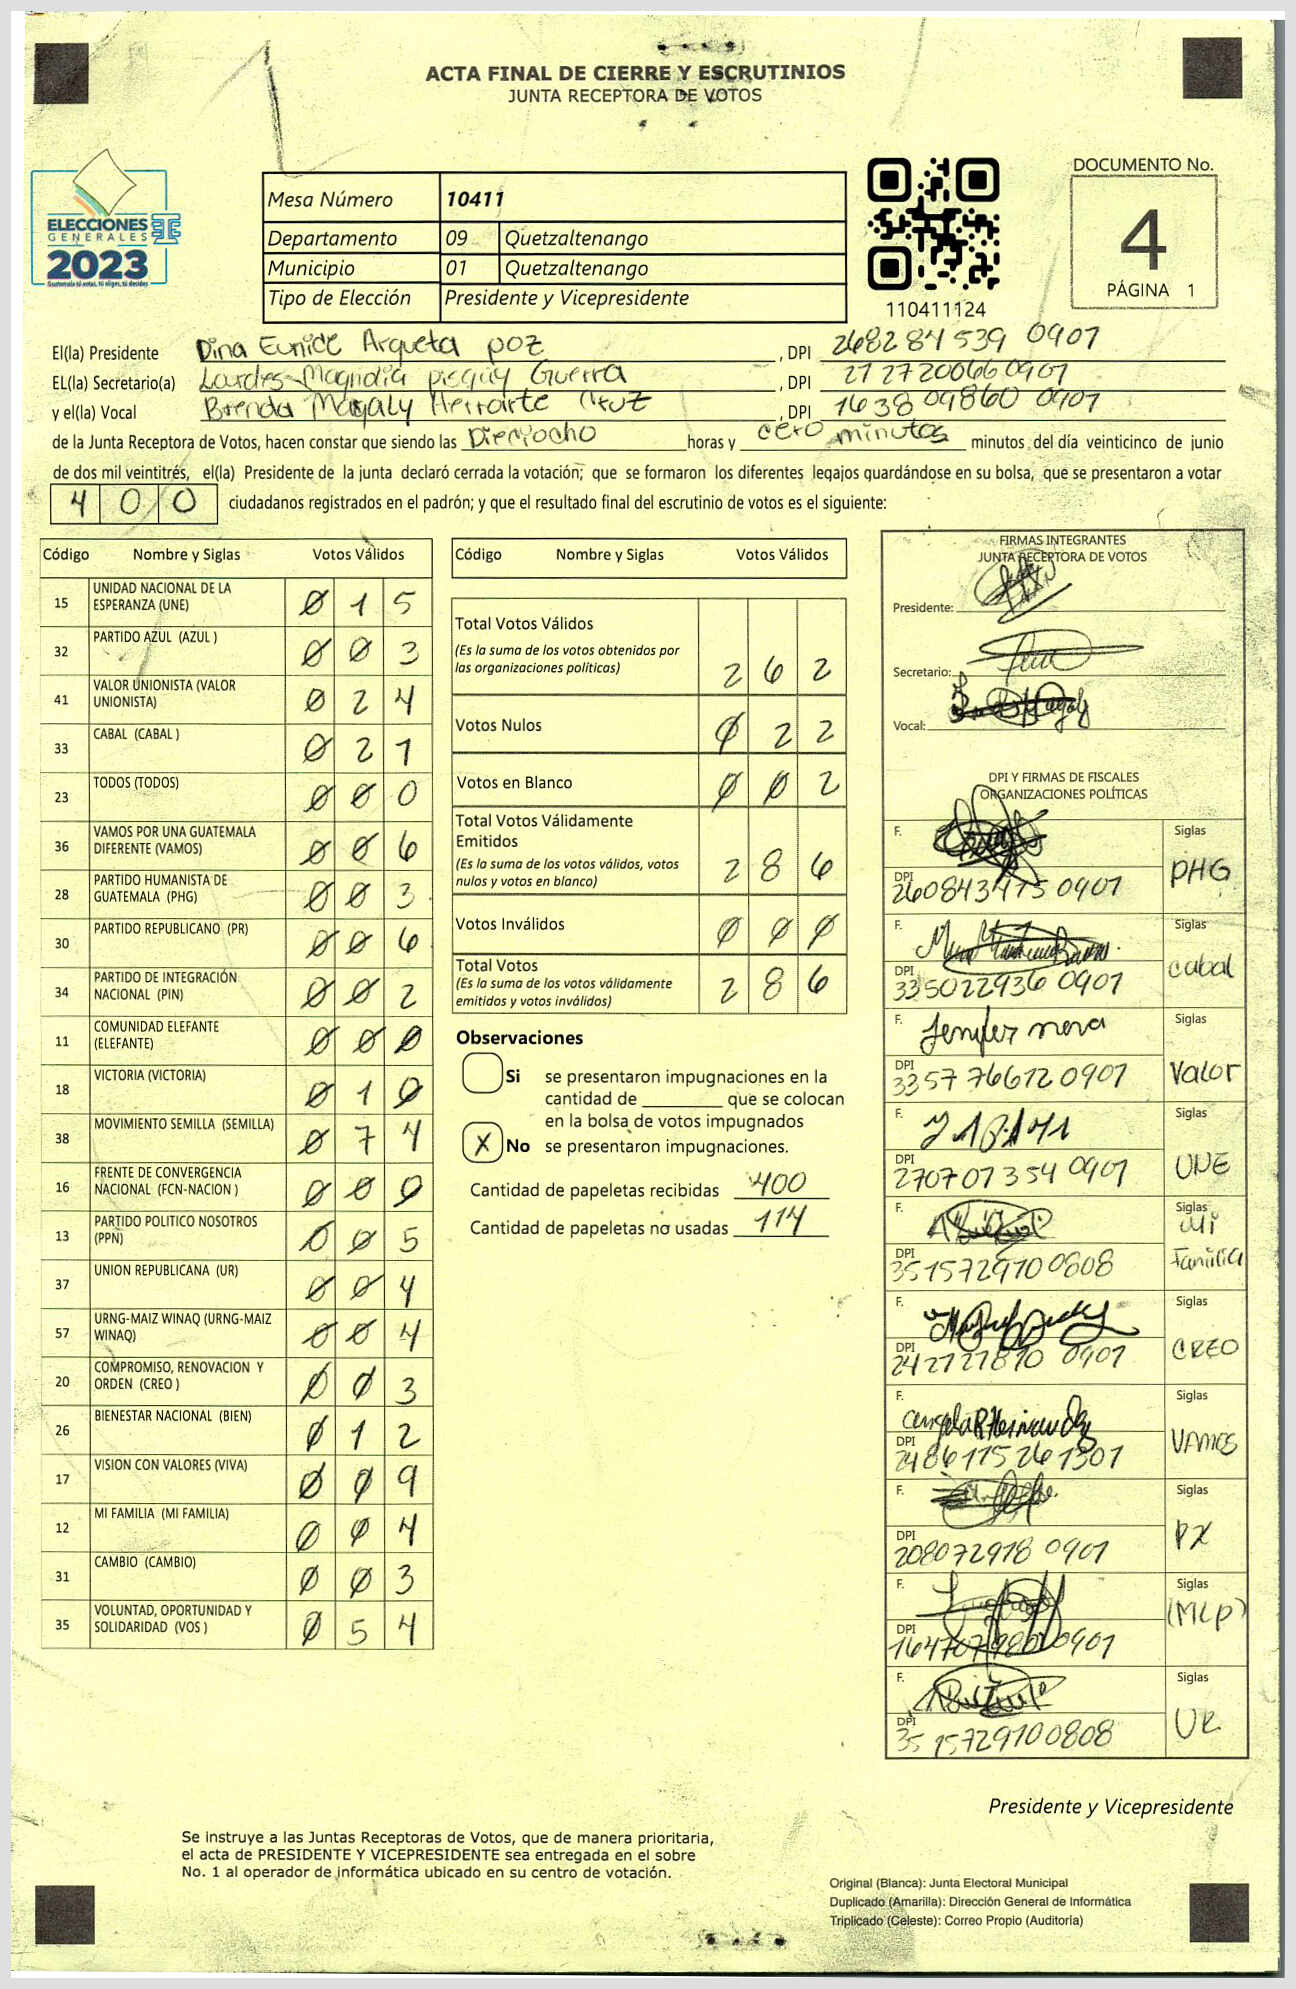 ACTA FINAL DE CIERRE Y ESCRUTINIOS
JUNTA RECEPTORA DE VOTOS
ELECCIONES
GENERALES
2023
Guatemala tú votas, tú eliges, tú decides
Mesa Número 10411
Departamento 09 Quetzaltenango
Municipio 01 Quetzaltenango
Tipo de Elección Presidente y Vicepresidente
110411124
DOCUMENTO No.
4
PÁGINA 1
El(la) Presidente Dina Eunice Argueta poz , DPI 268284539 0901
EL(la) Secretario(a) Lourdes Magnolia pisquiy Guerra , DPI 2127200660901
y el(la) Vocal Brenda Magaly Herrarte Cruz , DPI 163809860 0901
de la Junta Receptora de Votos, hacen constar que siendo las Dieciocho horas y cero minutos minutos del día veinticinco de junio
de dos mil veintitrés, el(la) Presidente de la junta declaró cerrada la votación; que se formaron los diferentes legajos guardándose en su bolsa, que se presentaron a votar
400 ciudadanos registrados en el padrón; y que el resultado final del escrutinio de votos es el siguiente:
Código Nombre y Siglas Votos Válidos
15 UNIDAD NACIONAL DE LA ESPERANZA (UNE) 0 1 5
32 PARTIDO AZUL (AZUL ) 0 0 3
41 VALOR UNIONISTA (VALOR UNIONISTA) 0 2 4
33 CABAL (CABAL ) 0 2 1
23 TODOS (TODOS) 0 0 0
36 VAMOS POR UNA GUATEMALA DIFERENTE (VAMOS) 0 0 6
28 PARTIDO HUMANISTA DE GUATEMALA (PHG) 0 0 3
30 PARTIDO REPUBLICANO (PR) 0 0 6
34 PARTIDO DE INTEGRACIÓN NACIONAL (PIN) 0 0 2
11 COMUNIDAD ELEFANTE (ELEFANTE) 0 0 0
18 VICTORIA (VICTORIA) 0 1 0
38 MOVIMIENTO SEMILLA (SEMILLA) 0 7 4
16 FRENTE DE CONVERGENCIA NACIONAL (FCN-NACION ) 0 0 0
13 PARTIDO POLITICO NOSOTROS (PPN) 0 0 5
37 UNION REPUBLICANA (UR) 0 0 4
57 URNG-MAIZ WINAQ (URNG-MAIZ WINAQ) 0 0 4
20 COMPROMISO, RENOVACION Y ORDEN (CREO ) 0 0 3
26 BIENESTAR NACIONAL (BIEN) 0 1 2
17 VISION CON VALORES (VIVA) 0 0 9
12 MI FAMILIA (MI FAMILIA) 0 0 4
31 CAMBIO (CAMBIO) 0 0 3
35 VOLUNTAD, OPORTUNIDAD Y SOLIDARIDAD (VOS ) 0 5 4
Código Nombre y Siglas Votos Válidos
Total Votos Válidos
(Es la suma de los votos obtenidos por
las organizaciones políticas) 2 6 2
Votos Nulos 0 2 2
Votos en Blanco 0 0 2
Total Votos Válidamente
Emitidos
(Es la suma de los votos válidos, votos
nulos y votos en blanco) 2 8 6
Votos Inválidos 0 0 0
Total Votos
(Es la suma de los votos válidamente
emitidos y votos inválidos) 2 8 6
Observaciones
Si se presentaron impugnaciones en la
cantidad de ________ que se colocan
en la bolsa de votos impugnados
X No se presentaron impugnaciones.
Cantidad de papeletas recibidas 400
Cantidad de papeletas no usadas 114
FIRMAS INTEGRANTES
JUNTA RECEPTORA DE VOTOS
Presidente:
Secretario:
Vocal:
DPI Y FIRMAS DE FISCALES
ORGANIZACIONES POLÍTICAS
F. Siglas
DPI 260843415 0901 PHG
F. Siglas
DPI 335022936 0901 cabal
F. Jennifer mora Siglas
DPI 3357 76612 0901 Valor
F. Siglas
DPI 270707354 0901 UNE
F. Siglas
DPI 3515729100808 Mi Familia
F. Siglas
DPI 242727810 0901 CREO
F. Siglas
DPI 2486115261301 VAMOS
F. Siglas
DPI 208072918 0901 PX
F. Siglas
DPI (MLp)
F. Siglas
DPI 3515729100808 UR
Presidente y Vicepresidente
Se instruye a las Juntas Receptoras de Votos, que de manera prioritaria,
el acta de PRESIDENTE Y VICEPRESIDENTE sea entregada en el sobre
No. 1 al operador de informática ubicado en su centro de votación.
Original (Blanca): Junta Electoral Municipal
Duplicado (Amarilla): Dirección General de Informática
Triplicado (Celeste): Correo Propio (Auditoría)